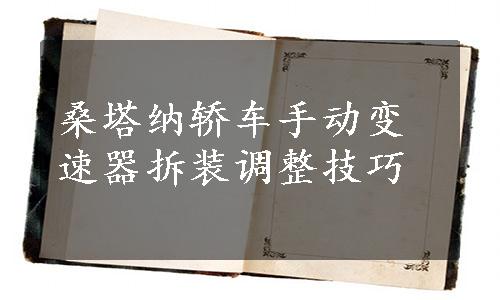 桑塔纳轿车手动变
速器拆装调整技巧